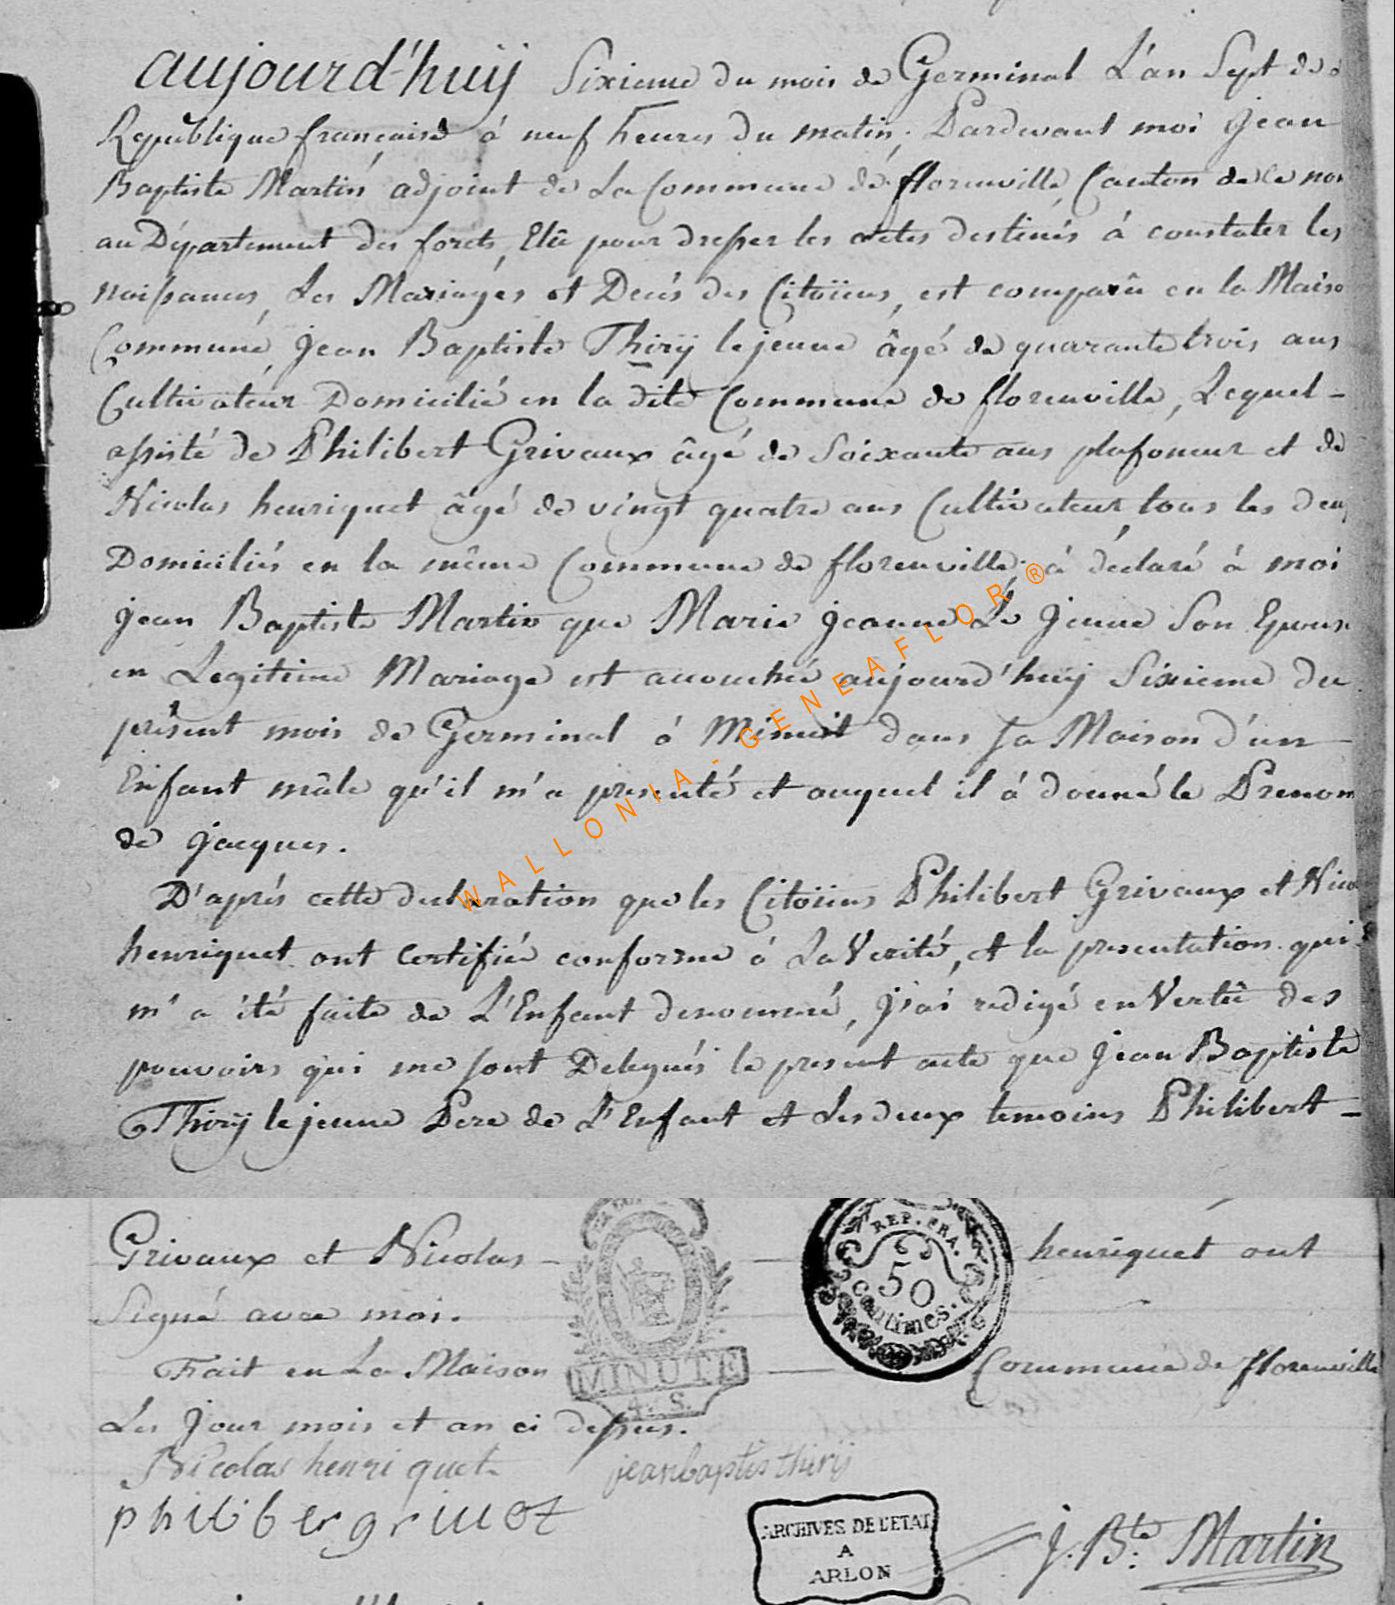 aujourd'huÿ Sixieme du mois de Germinal L'an Sept de
Republique francaise á neuf heures du matin, Pardevant moi jean
Baptiste Martin adjoint de La Commune de florenville Canton de ce nom
au Département des forets, Elû pour dresser les actes destinés á constater les
naissances, Les Mariages et Decès des Citoïens, est comparû en la Maiso
Commune, jean Baptiste Thirÿ le jeune âgé de quarante trois ans
Cultivateur Domicilié en la dite Commune de florenville, Lequel -
assisté de Philibert Grivaux âgé de Soixante ans plafoneur et de
Nicolas henriquet âgé de vingt quatre ans Cultivateur, tous les deux
Domiciliés en la même Commune de florenville; á déclaré á moi
jean Baptiste Martin que Marie jeanne Le jeune Son Epouse
en Legitime Mariage est accouchée aujourd'huÿ Sixieme du
présent mois de Germinal á Minuit dans sa Maison d'un
Enfant mâle qu'il m'a presenté et auquel il á donné le Prenom
de jacques.
D'aprés cette declaration que les Citoïens Philibert Grivaux et Nico
henriquet ont certifié conforme á La Verité, et la presentation qui
m'a été faite de L'Enfant denommé, j'ai redigé en Vertû des
pouvoirs qui me sont Delegués le present acte que jean Baptiste
Thirÿ le jeune Pere de L'Enfant et Les deux temoins Philibert -
Grivaux et Nicolas - henriquet ont
Signé avec moi.
Fait en La Maison Commune de florenville
Les jour mois et an ci dessus.
Nicolas henriquet jeanbaptis thirij
philiber grivot
J. Bte: Martin
REP. FRA.
50
Centimes.
MINUTE
4. S.
ARCHIVES DE L'ETAT
A
ARLON
WALLONIA - GENEAFLOR®